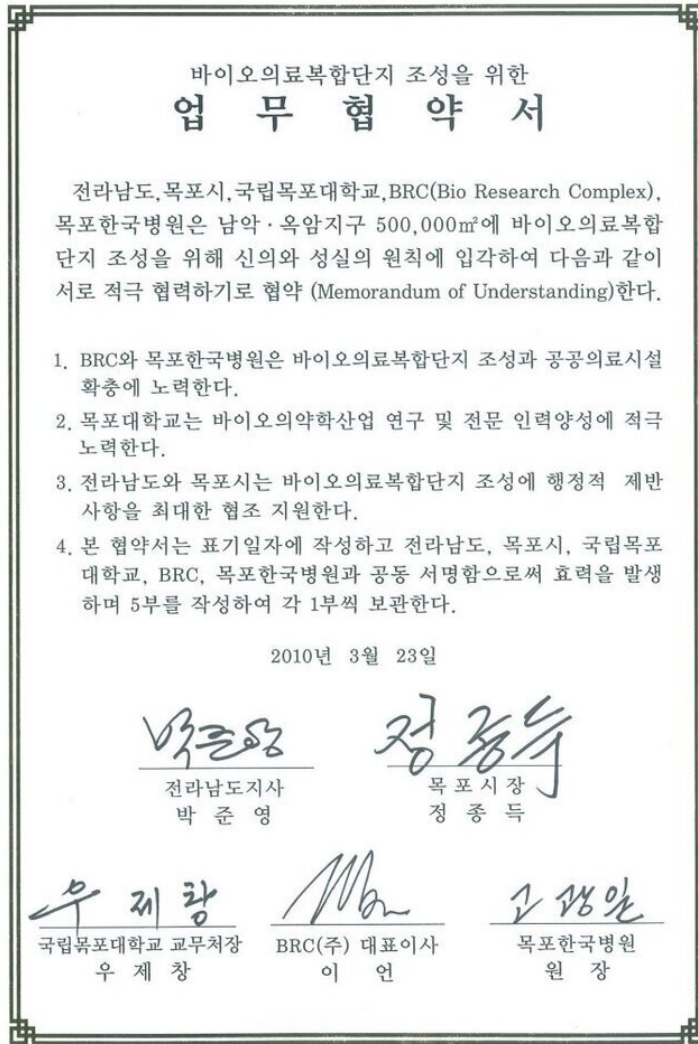 바이오의료복합단지 조성을 위한
업 무 협 약 서
전라남도,목포시,국립목포대학교,BRC(Bio Research Complex),
목포한국병원은 남악 · 옥암지구 500,000㎡에 바이오의료복합
단지 조성을 위해 신의와 성실의 원칙에 입각하여 다음과 같이
서로 적극 협력하기로 협약 (Memorandum of Understanding)한다.
1. BRC와 목포한국병원은 바이오의료복합단지 조성과 공공의료시설
확충에 노력한다.
2. 목포대학교는 바이오의약학산업 연구 및 전문 인력양성에 적극
노력한다.
3. 전라남도와 목포시는 바이오의료복합단지 조성에 행정적 제반
사항을 최대한 협조 지원한다.
4. 본 협약서는 표기일자에 작성하고 전라남도, 목포시, 국립목포
대학교, BRC, 목포한국병원과 공동 서명함으로써 효력을 발생
하며 5부를 작성하여 각 1부씩 보관한다.
2010년 3월 23일
박준영 정종득
전라남도지사 목포시장
박 준 영 정 종 득
우제창 고광일
국립목포대학교 교무처장 BRC(주) 대표이사 목포한국병원
우 제 창 이 언 원 장